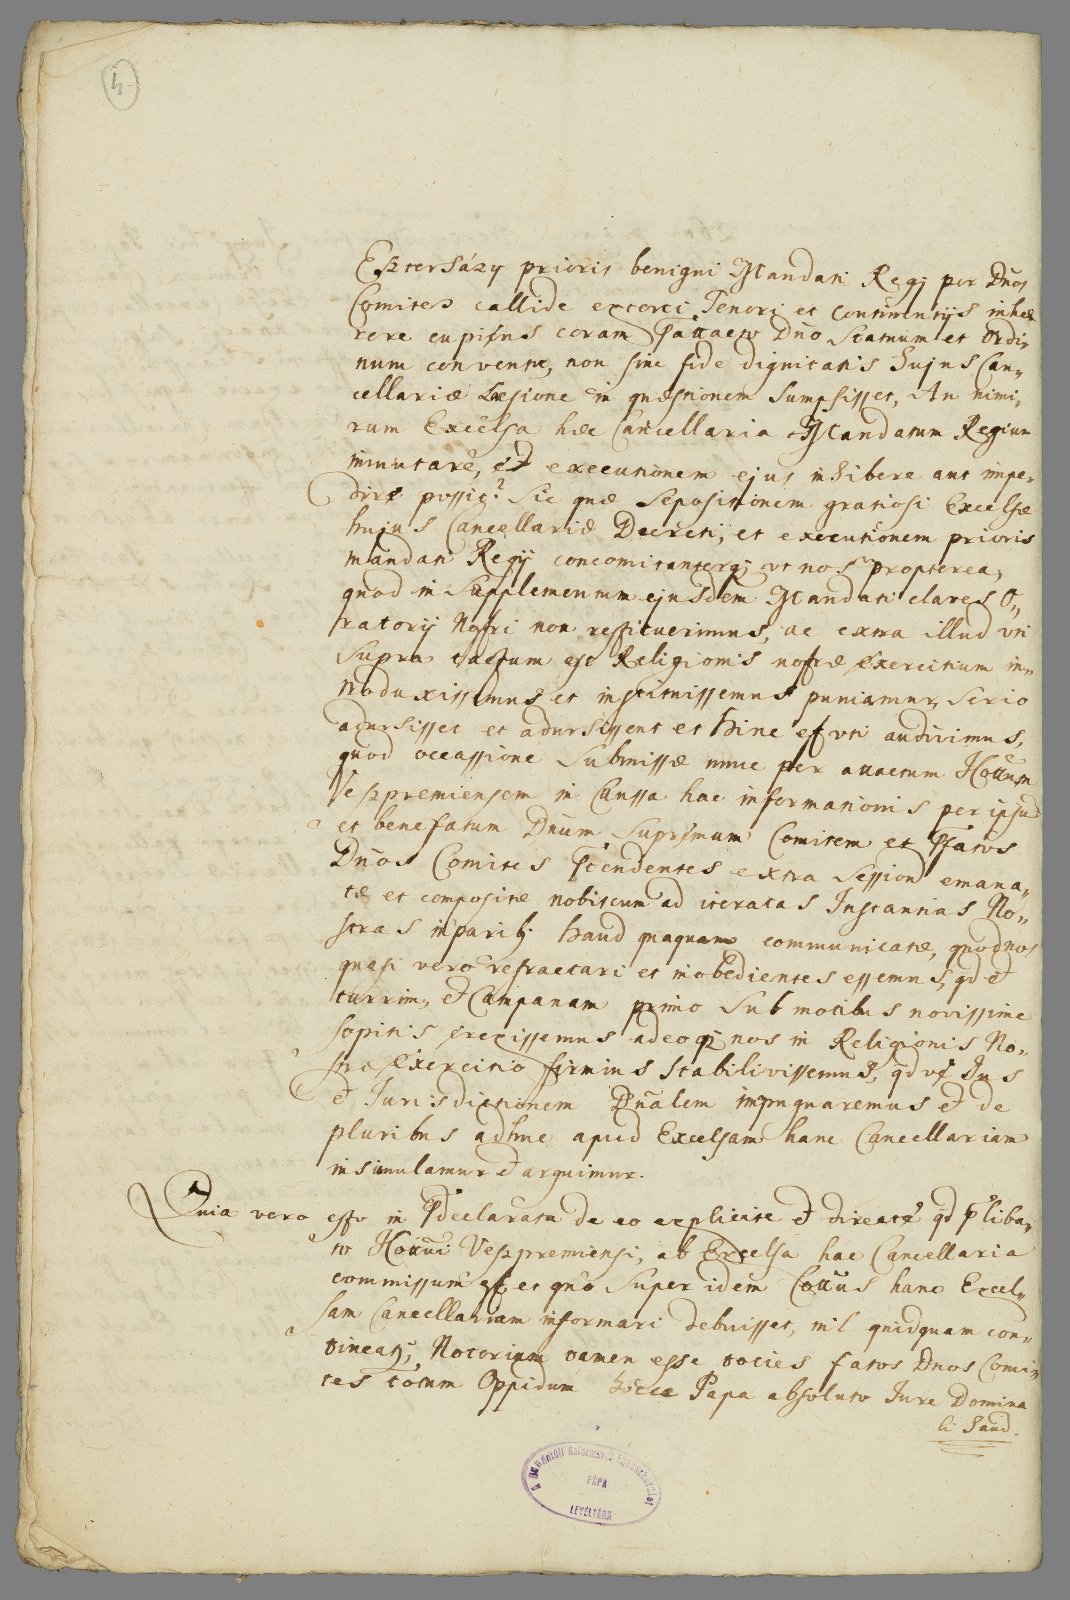 4.
Eszterházy prioris benigni Mandati Regij per Dnos
Comites callide extorti Tenori et continentijs inhæ
rere cupiens coram Dno Statuum et Ordi„
num conventu, non sine fide dignitatis hujus Can„
cellariæ Læsione in quæstionem sumpsisset, An nimi„
rum Excelsa hæc Cancellaria Mandatum Regium
immutare, et executionem ejus inhibere aut impe„
dire possit? Sic quæ sepositionem gratiosi Excelsæ
hujus Cancellariæ Decreti, et executionem prioris
mandati Regij concomitanterq; ut nos propterea,
quod in Supplementum ejusdem Mandati claves O„
ratorij Nostri non restituerimus, ac extra illud uti
supra tactum est Religionis nostræ exercitium in„
troduxissemus et instituissemus puniamur, serio
adursisset et adursissent et hinc est uti audivimus,
quod occassione submissæ nunc per attactum Cottum
Veszpremiensem in Caussa hac informationis per ipsum
et benefatum Dnum Supremum Comitem et Pfatos
Dnos Comites extra Session emana„
tæ et compositæ nobiscum ad iteratas Instantias No„
stras in paribq haud quaquam communicatæ, quod nos
quasi vero refractari et inobedientes essemus, qd et
turrim, et Campanam primo sub motibus novissime
sopitis erexissemus adeoq; nos in Religionis No„
stræ exercitio firmius stabilivissemus, qd
et Jurisdictionem Dnalem impugnaremus et de
pluribus adhuc apud Excelsam hanc Cancellariam
insimulamur et arguimur.
Quia vero esto in Pdeclarata de eo explicite et directe qd Pliba„
to Cottui Veszpremiensi, ab Excelsa hac Cancellaria
commissum est et quo super idem Cottus hanc Excel„
sam Cancellariam informari debuisset, nil quidquam con„
tineatr, Notorium tamen esse toties fatos Dnos Comi„
tes totum Oppidum hocce Papa absoluto Jure Domina
li haud.
A Dunántúli Református Egyházkerület
PÁPA
LEVÉLTÁRA